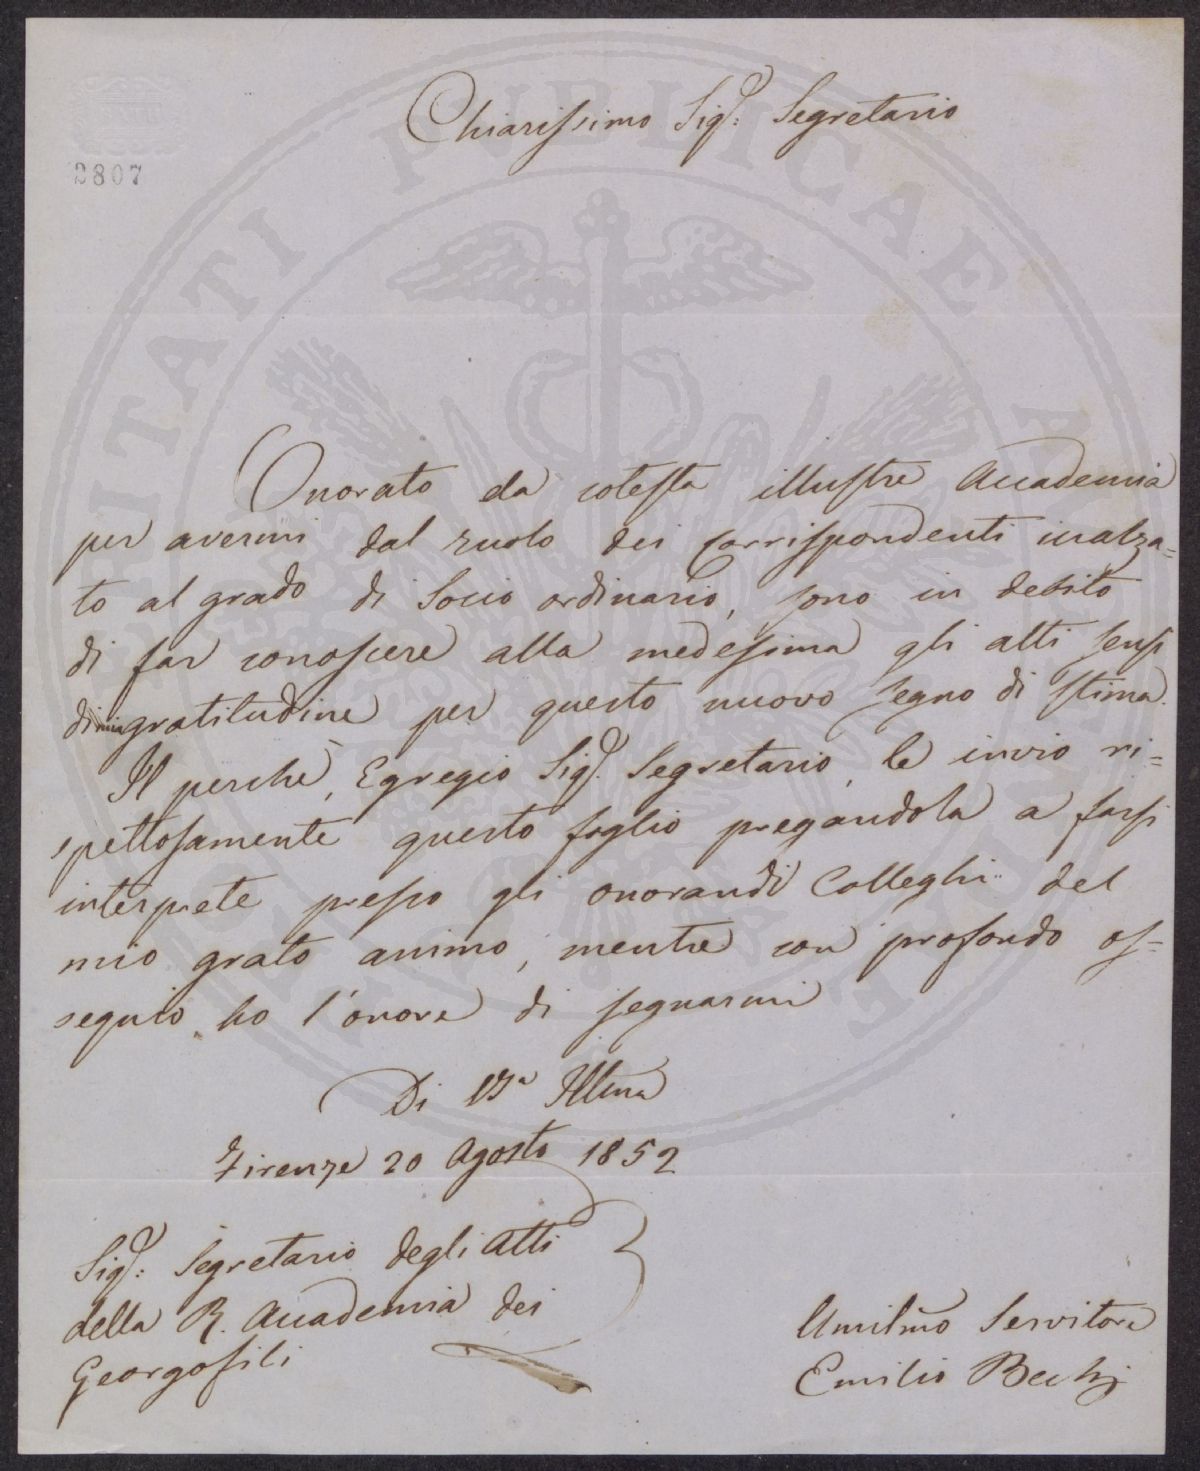 Chiarissimo Sigr: Segretario
2807
Onorato da cotesta illustre Accademia
per avermi dal ruolo dei Corrispondenti inalza=
to al grado di Socio ordinario, sono in debito
di far conoscere alla medesima gli alti sensi
di mia gratitudine per questo nuovo segno di stima.
Il perchè, Egregio Sigr. Segretario, le invio ri=
spettosamente questo foglio pregandola a farsi
interprete presso gli onorandi Colleghi del
mio grato animo, mentre con profondo os=
sequio ho l'onore di segnarmi
Di VSa Illma
Firenze 20 Agosto 1852
Sigr: Segretario degli Atti
della R. Accademia dei
Georgofili
Umilmo Servitore
Emilio Bechi
PROSPERITATI PUBLICAE AUGENDAE